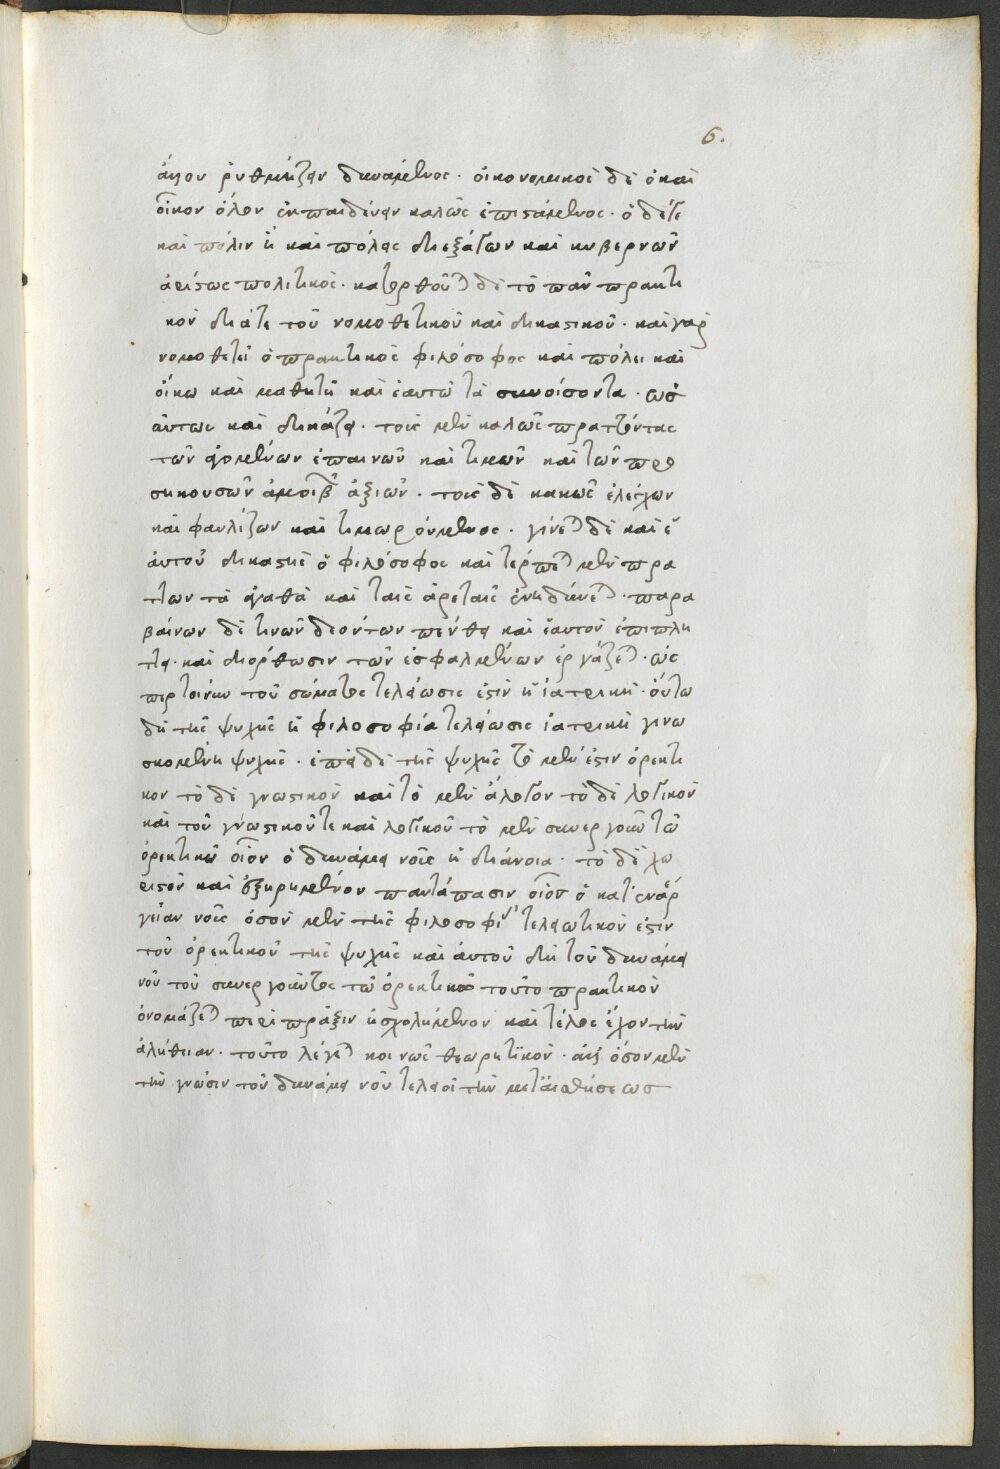 6.
ἄλλον ῥυθμίζειν δυνάμενος. οἰκονομικὸς δὲ ὁ καὶ
οἶκον ὅλον ἐκπαιδεύειν καλῶς ἐπιστάμενος. ὁ δέ γε
καὶ πόλιν ἢ καὶ πόλεις διεξάγων καὶ κυβερνῶν
ἀρίστως πολιτικός. κατορθοῦται δὲ τὸ πᾶν πρακτι
κὸν διά τε τοῦ νομοθετικοῦ καὶ δικαστικοῦ. καὶ γὰρ
νομοθετεῖ ὁ πρακτικὸς φιλόσοφος καὶ πόλει καὶ
οἴκω καὶ μαθητῆ καὶ ἑαυτῶ τὰ συνοίσοντα. ὡσ
αύτως καὶ δικάζει. τοὺς μὲν καλῶς πράττοντας
τῶν ἀρχομένων ἐπαινῶν καὶ τιμῶν καὶ τῶν προ
σηκουσῶν ἀμοιβῶν ἀξιῶν. τοὺς δὲ κακῶς ἐλέγχων
καὶ φαυλίζων καὶ τιμωρούμενος. γίνεται δὲ καὶ ἑ
αυτοῦ δικαστὴς ὁ φιλόσοφος καὶ τέρπεται μὲν πρά
ττων τὰ ἀγαθὰ καὶ ταῖς ἀρεταῖς ἐνηδύνεται. παρα
βαίνων δέ τι τῶν δεόντων πενθεῖ καὶ ἑαυτὸν ἐπιπλή
ττει. καὶ διόρθωσιν τῶν ἐσφαλμένων ἐργάζεται. ὥσ
περ τοίνυν τοῦ σώματος τελείωσις ἐστὶν ἡ ἰατρική. οὕτω
δὴ τῆς ψυχῆς ἡ φιλοσοφία τελείωσις ἰατρικὴ γινω
σκομένη ψυχῆς. ἐπεὶ δὲ τῆς ψυχῆς τὸ μέν ἐστιν ὀρεκτι
κον τὸ δὲ γνωστικὸν καὶ τὸ μὲν ἄλογον τὸ δὲ λογικὸν
καὶ τοῦ γνωστικοῦ τε καὶ λογικοῦ τὸ μὲν συνεργοῦν τῶ
ὀρεκτικῶ οἷον ὁ δυνάμει νοῦς ἡ διάνοια. τὸ δὲ χω
ριστὸν καὶ ἐξηρημένον παντάπασιν οἷον ὁ κατ' ἐνέρ
γειαν νοῦς ὅσον μὲν τῆς φιλοσοφίας τελειωτικὸν ἐστιν
τοῦ ὀρεκτικοῦ τῆς ψυχῆς καὶ αὐτοῦ δὴ τοῦ δυνάμει
νοῦ τοῦ συνεργοῦντος τῶ ὀρεκτικῶ τοῦτο πρακτικὸν
ὀνομάζεται περὶ πρᾶξιν ἠσχολημένον καὶ τέλος ἔχον τὴν
ἀλήθειαν. τοῦτο λέγεται κοινῶς θεωρητικόν. ἀλλ' ὅσον μὲν
τὴν γνῶσιν τοῦ δυνάμει νοῦ τελειοῖ τὴν μετ' αἰσθήσεως